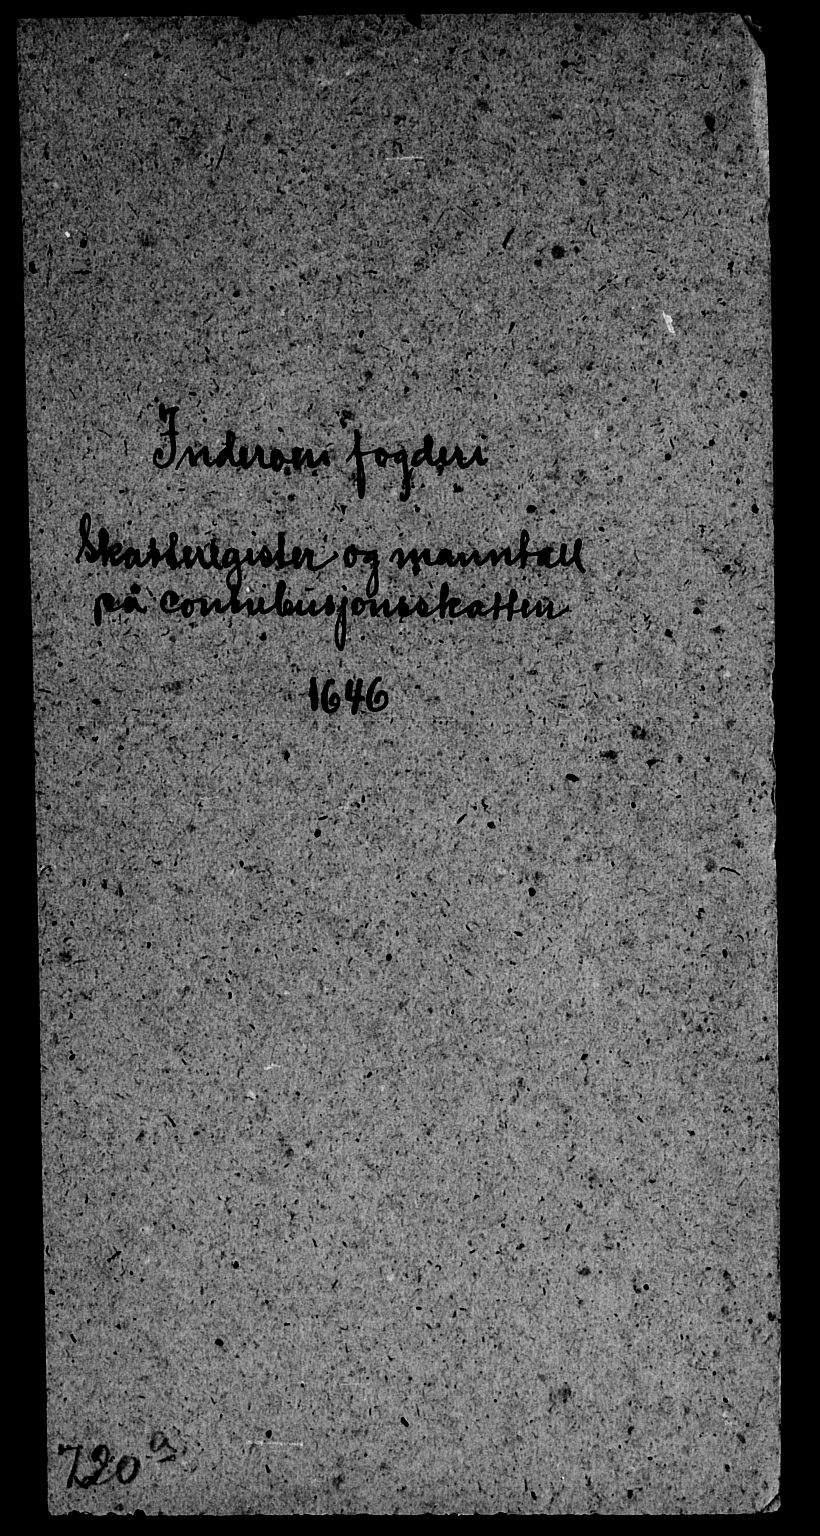 Inderøen fogderi
Skatteregister og manntall
på contribusjonsskatten
1646
720 a